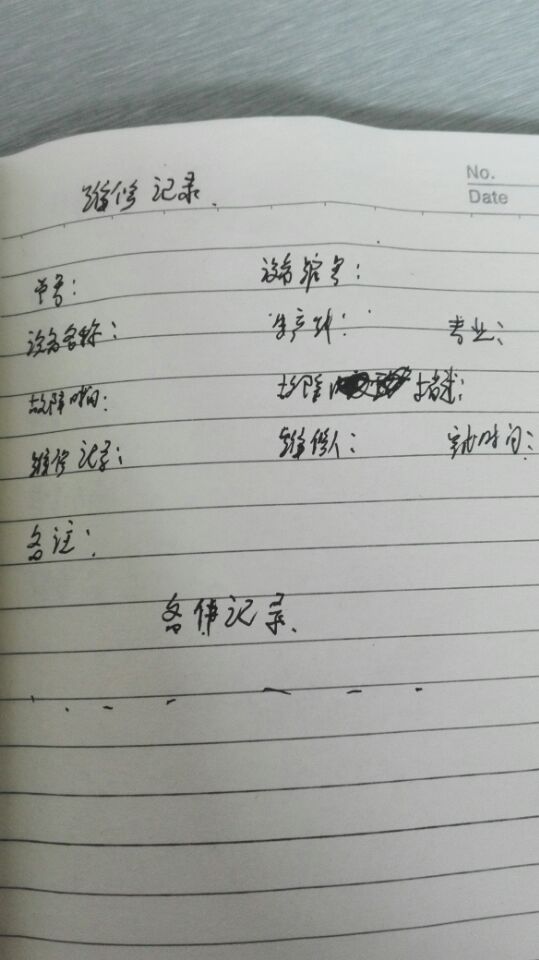 No.
Date
维修记录.
单号: 设备编号:
设备名称: 生产线: 专业:
故障时间: 故障 描述:
维修记录: 维修人: 完成时间:
备注:
备件记录.